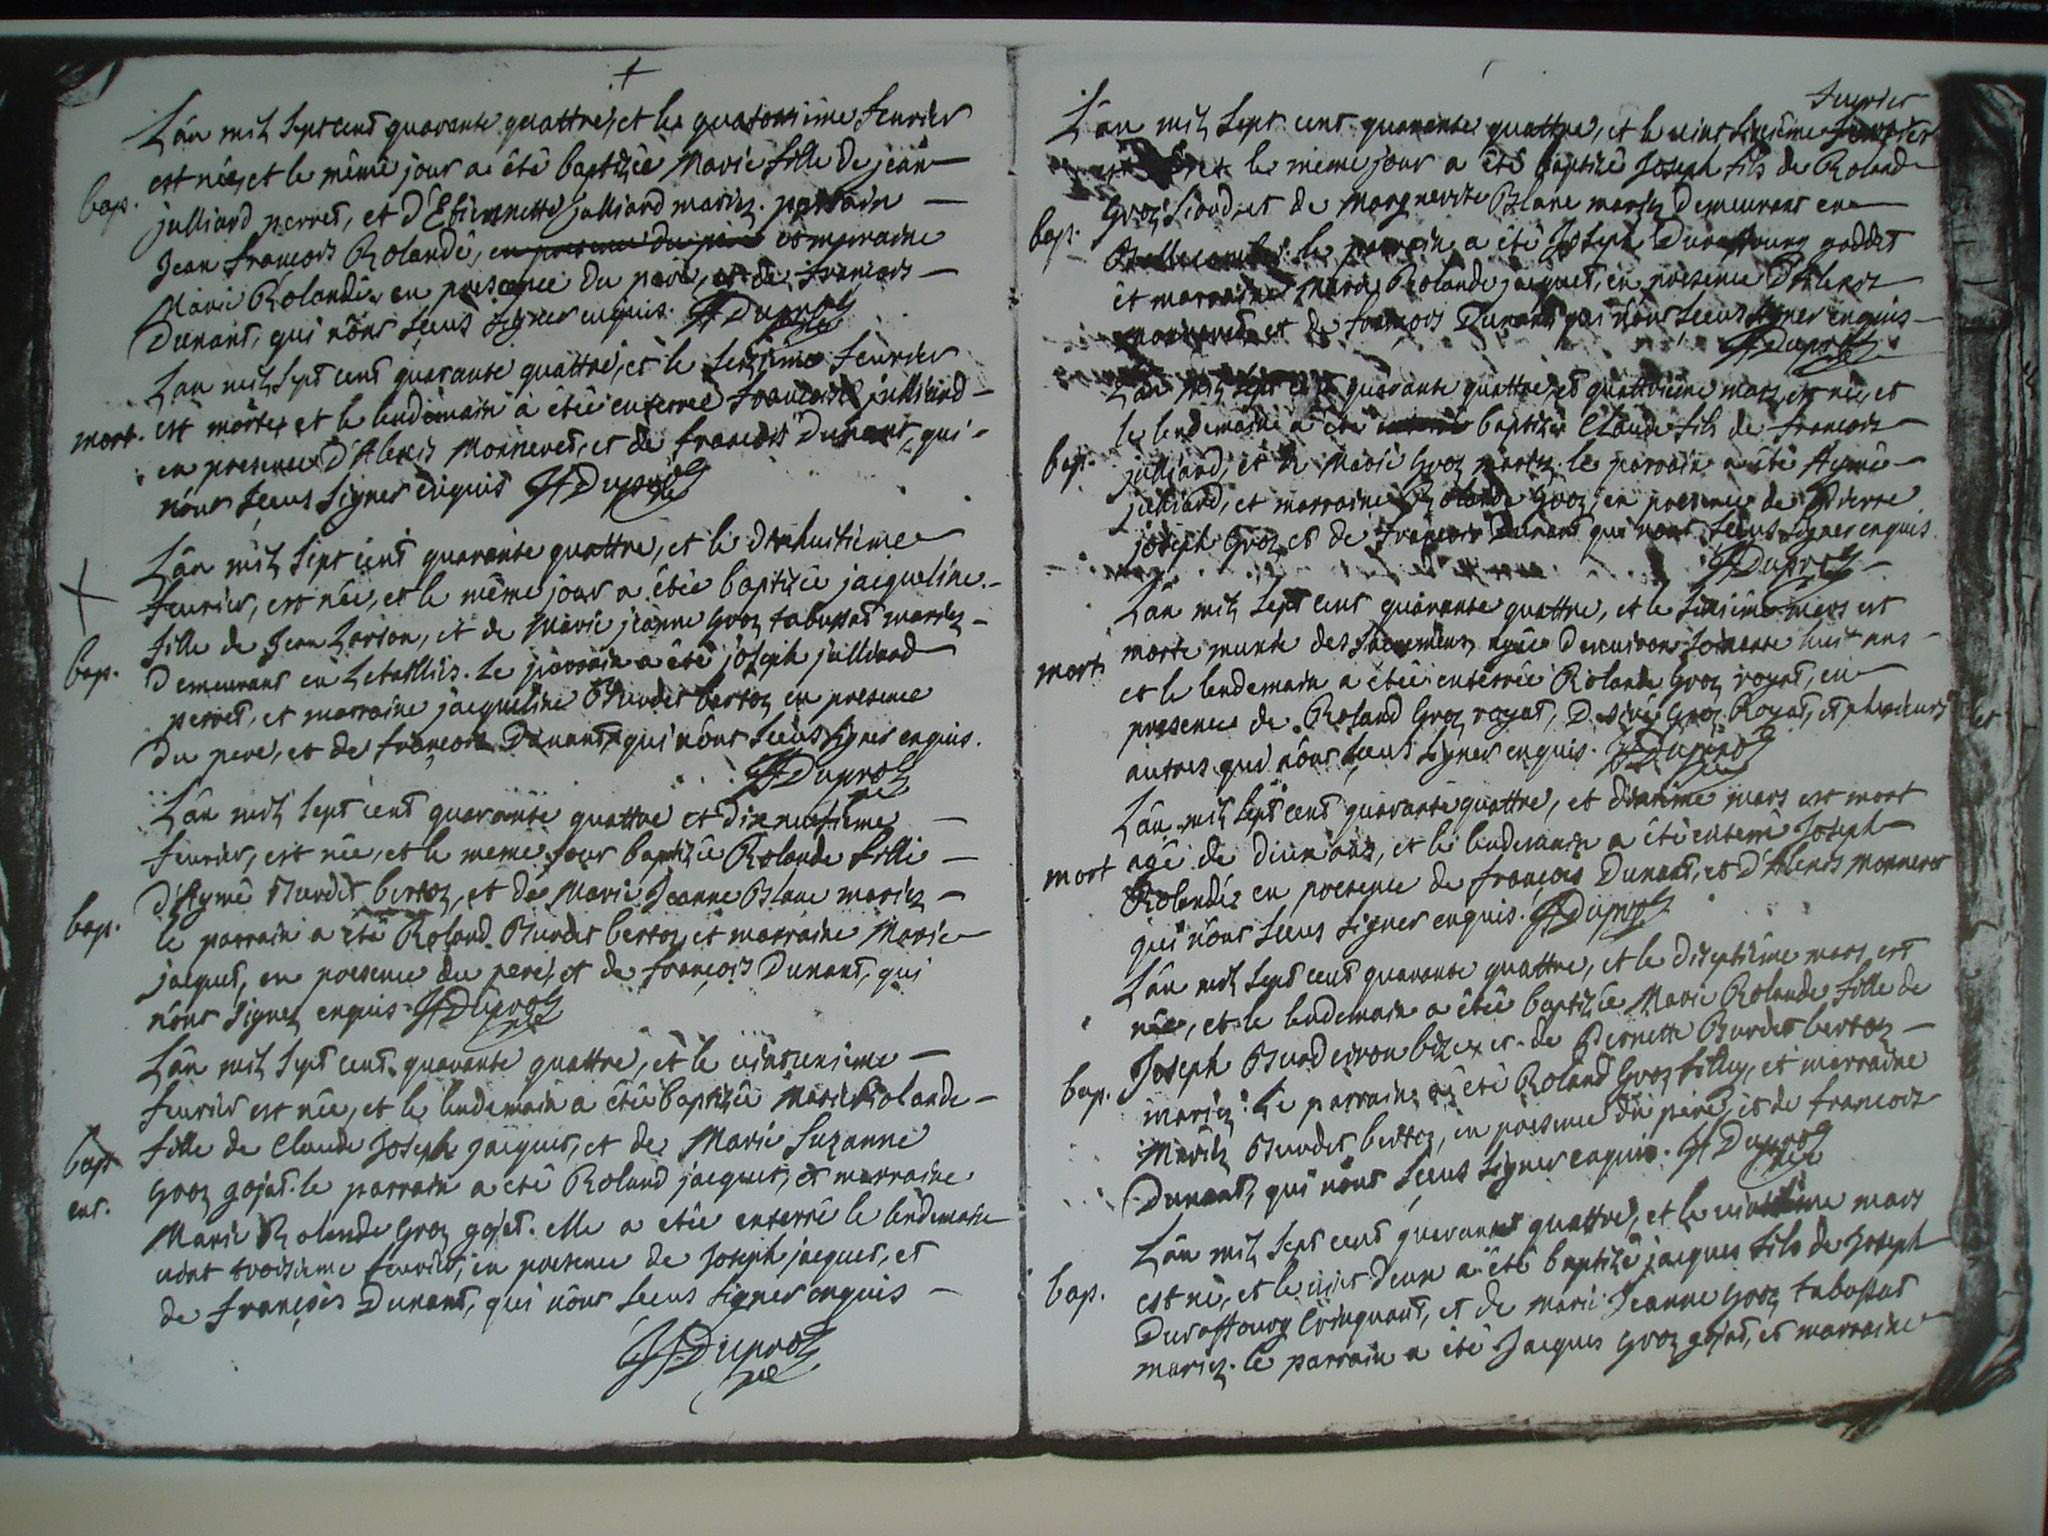 L'an mil sept cent quarante quattre, et le quatorsieme feurier
bap. est née, et le même jour a été baptizée Marie fille de jean
julliard perret, et d'Etiennette julliard mariez. parrain
Jean francois Rolandé, en presence du pere et marraine
Marie Rolandé en presence du pere, et de francois
Dunant, qui nont sceus signer enquis. JfDuproz
L'an mil sept cent quarante quattre, et le seizieme feurier
mort. est morte, et le lendemain a étée enterrée francoise julliard
en presence d'Alexis Monneret, et de francois Dunant, qui
nont sceus signer enquis JfDuproz
L'an mil sept cent quarante quattre, et le dixhuitieme
feurier, est née, et le même jour a étée baptizée jacqueline
fille de Jean Larson, et de Marie jeanne Groz tabussat mariez
bap. demeurant en . Le parrain a été joseph julliard
perret, et marraine jacqueline Burdet bertoz en presence
du pere, et de françois Dunant, qui nont sceus signer enquis.
JfDuproz
L'an mil sept cent quarante quattre et dixneufieme
feurier, est née, et le même jour baptizée Rolande fille
d'Aymé Burdet bertoz, et de Marie Jeanne Blanc mariez
bap. le parrain a été Roland Burdet bertoz et marraine Marie
jacquet, en presence du pere, et de françois Dunant, qui
nont signez enquis JfDuproz
L'an mil sept cent quarante quattre, et le vintunieme
feurier est née, et le lendemain a étée baptizée Marie Rolande
bapt fille de Claude Joseph jacquet, et de Marie Suzanne
ent. Groz gojat. le parrain a été Roland jacquet, et marraine
Marie Rolande Groz gojet. elle a étée enterré le lendemain
vint troisieme feurier, en presence de Joseph jacquet, et
de françois Dunant, qui nont sceus signer enquis
JfDuproz
feurier
L'an mil sept cent quarante quattre, et le vint sixieme
et le même jour a été baptizé Joseph fils de Roland
Groz et de Marguerite Blanc mariez demeurant en
bap. Bellecombe. le parrain a été Joseph Duraffourg goddet
et marraine Marie Rolande jacquet, en presence d'Alexis
Monneret, et de francois Dunant qui nont sceus signer enquis
JfDuproz
L'an mil sept cent quarante quattre, et quattrieme mars, est né, et
le lendemain a été baptizé Claude fils de francois
bap. julliard, et de Marie Groz mariez. le parrain a été Aymé
julliard, et marraine Rolande Groz, en presence de Pierre
joseph Groz, et de françois Dunant qui nont sceus signer enquis.
JfDuproz
L'an mil sept cent quarante quattre, et le sixieme mars est
mort. morte munie des sacrements agée d'environ soixante huit ans
et le lendemain a étée enterrée Rolande Groz royat, en
presence de Roland Groz royat, Groz Royat, et plusieurs
autres qui nont sceus signer enquis. JfDuproz
L'an mil sept cent quarante quattre, et dixieme mars est mort
mort agé de ans, et le lendemain a été enterré Joseph
Rolandéz en presence de françois Dunant, et d'Alexis Monneret
qui nont sceus signer enquis. JfDuproz
L'an mil sept cent quarante quattre, et le diseptième mars est
née, et le lendemain a étée baptizée Marie Rolande fille de
bap. Joseph et de Pernette Burdet bertoz
mariez. Le parrain a été Roland Groz filliz, et marraine
Marie Burdet bertoz, en presence du pere, et de francois
Dunant, qui nont sceus signer enquis. JfDuproz
L'an mil sept cent quarante quattre, et le vintieme mars
bap. est né, et le vint deux a été baptizé jacques fils de Joseph
Duraffourg Crinquant, et de Marie Jeanne Groz tabussat
mariez. le parrain a été Jacques Groz gojat, et marraine